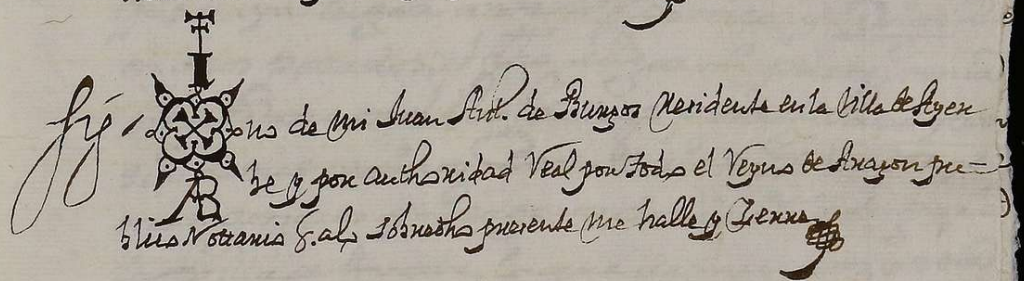 Sig-no de mi Juan Ant. de Burgos Residente en la Villa de Ayer
be y por authoridad Real por todo el Reyno de Aragon pu-
blico Nottario q. a lo sobredho presente me halle y Cerre